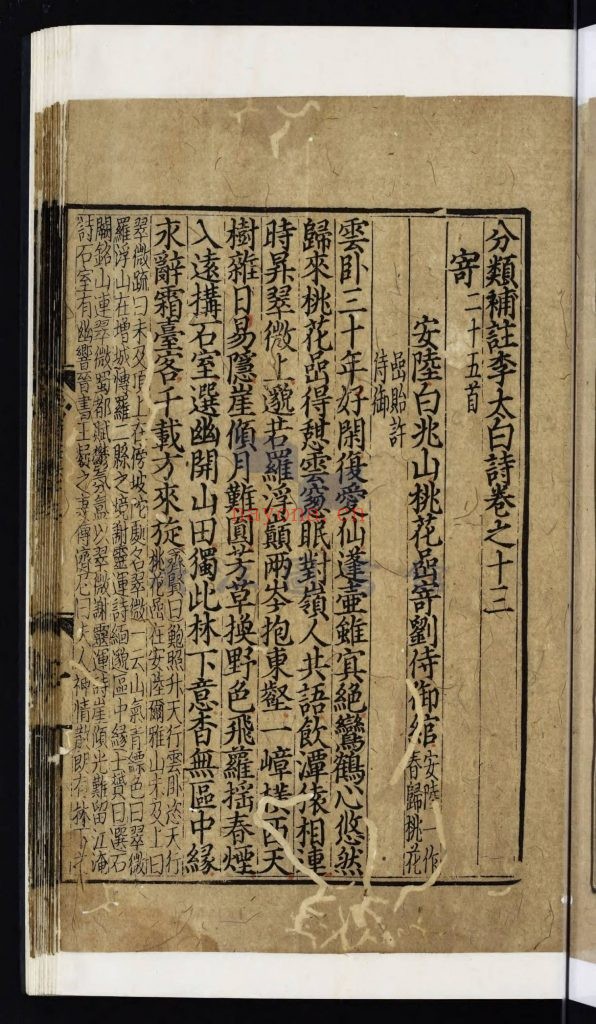 分類補註李太白詩卷之十三
寄二十五首
安陸白兆山桃花嵒寄劉侍御綰安陸一作春歸桃花
嵒貽許侍御
雲卧三十年好閑復愛仙蓬壺雖冥絶鸞鶴心悠然
歸來桃花嵒得憩雲窓眠對嶺人共語飲潭猿相連
時昇翠微上邈若羅浮巔兩岑抱東壑一嶂橫西天
樹雜日易隱崖傾月難圓芳草換野色飛蘿揺春煙
入遠搆石室選幽開山田獨此林下意杳無區中縁
永辭霜臺客千載方來旋齊賢曰鮑照升天行雲卧恣天行桃花嵒在安陸爾雅山未及上曰
翠微疏曰未及頂上在傍坡陀處名翠微一云山氣青縹色曰翠微
羅浮山在增城博羅二縣之境謝靈運詩緬邈區中縁士贇曰選石
闕銘山連翠微蜀都賦鬱氛氳以翠微謝靈運詩崖傾光難留江淹
詩石室有幽響晉書王凝之妻傳濟尼曰夫人神情散朗有林下